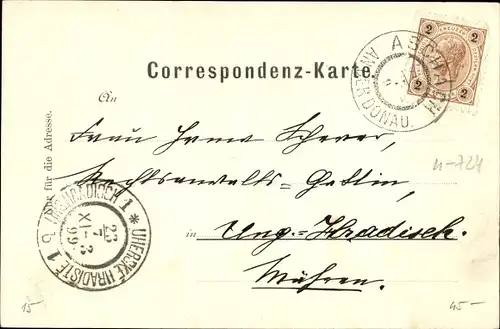 2 KREUZER 2
2 2
ASCHACH
AN DER DONAU.
Correspondenz-Karte.
An
Nur für die Adresse.
Frau Scherer,
Rechtsanwalts-Gattin,
in Ung.-Hradisch.
Mähren.
UNG. HRADISCH 1 * UHERSKÉ HRADIŠTĚ 1 b
23
XI-3
99
15-
45-